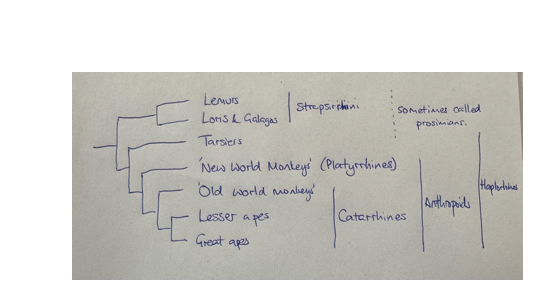 Lemurs
Loris & Galagos
Strepsirrhini
sometimes called
prosimians.
Tarsiers
'New World Monkeys' (Platyrrhines)
'Old World monkeys'
Lesser apes
Great apes
Catarrhines
Anthropoids
Haplorhines